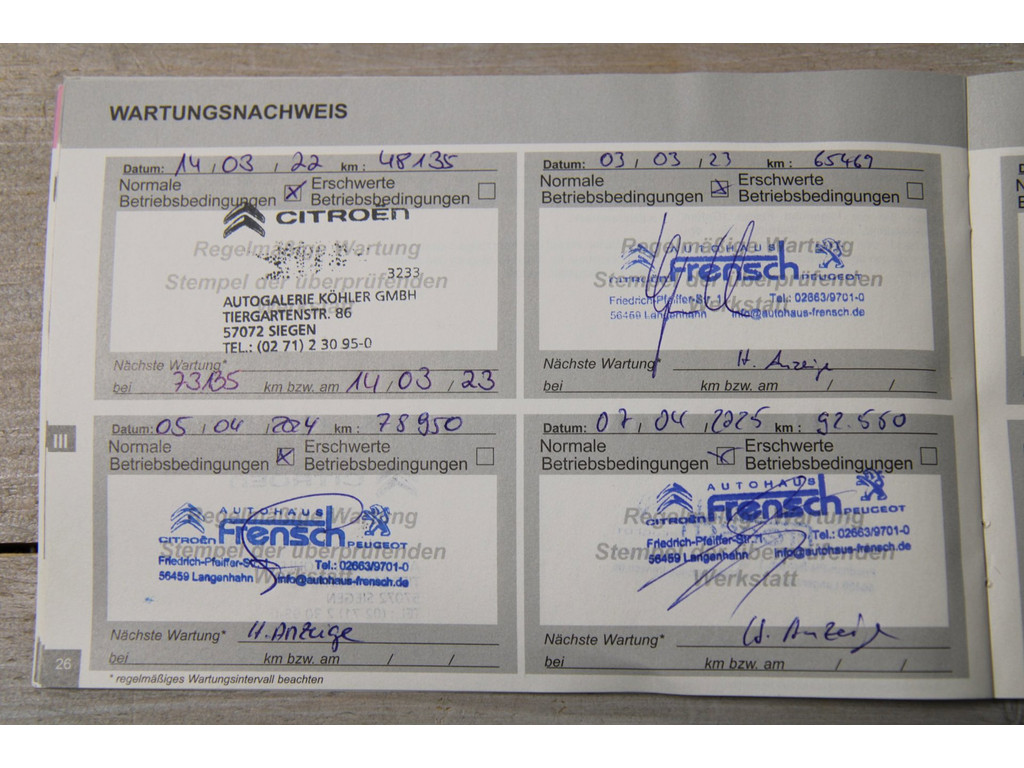 WARTUNGSNACHWEIS
Datum: 14 / 03 / 22 km : 48135
Normale Betriebsbedingungen ☒ Erschwerte Betriebsbedingungen ☐
CITROËN
Regelmäßige Wartung
3233
Stempel der überprüfenden
AUTOGALERIE KÖHLER GMBH
TIERGARTENSTR. 86
57072 SIEGEN
TEL.: (02 71) 2 30 95-0
Nächste Wartung*
bei 73135 km bzw. am 14 / 03 / 23
Datum: 03 / 03 / 23 km : 65469
Normale Betriebsbedingungen ☒ Erschwerte Betriebsbedingungen ☐
Regelmäßige Wartung
AUTOHAUS
Frensch
CITROËN PEUGEOT
Friedrich-Pfeiffer-Str. 1 Tel.: 02663/9701-0
Werkstatt
56459 Langenhahn info@autohaus-frensch.de
Nächste Wartung* lt. Anzeige
bei km bzw. am / /
Datum: 05 / 04 / 2024 km : 78950
Normale Betriebsbedingungen ☒ Erschwerte Betriebsbedingungen ☐
AUTOHAUS
Regelmäßige Wartung
Frensch
CITROËN PEUGEOT
Stempel der überprüfenden
Friedrich-Pfeiffer-Str. Tel.: 02663/9701-0
Werkstatt
56459 Langenhahn info@autohaus-frensch.de
Nächste Wartung* lt. Anzeige
bei km bzw. am / /
Datum: 07 / 04 / 2025 km : 92.560
Normale Betriebsbedingungen ☒ Erschwerte Betriebsbedingungen ☐
AUTOHAUS
Frensch
CITROËN PEUGEOT
Regelmäßige Wartung
Friedrich-Pfeiffer-Str. 1 Tel.: 02663/9701-0
Stempel der überprüfenden
56459 Langenhahn info@autohaus-frensch.de
Werkstatt
Nächste Wartung* lt. Anzeige
bei km bzw. am / /
* regelmäßiges Wartungsintervall beachten
III
26